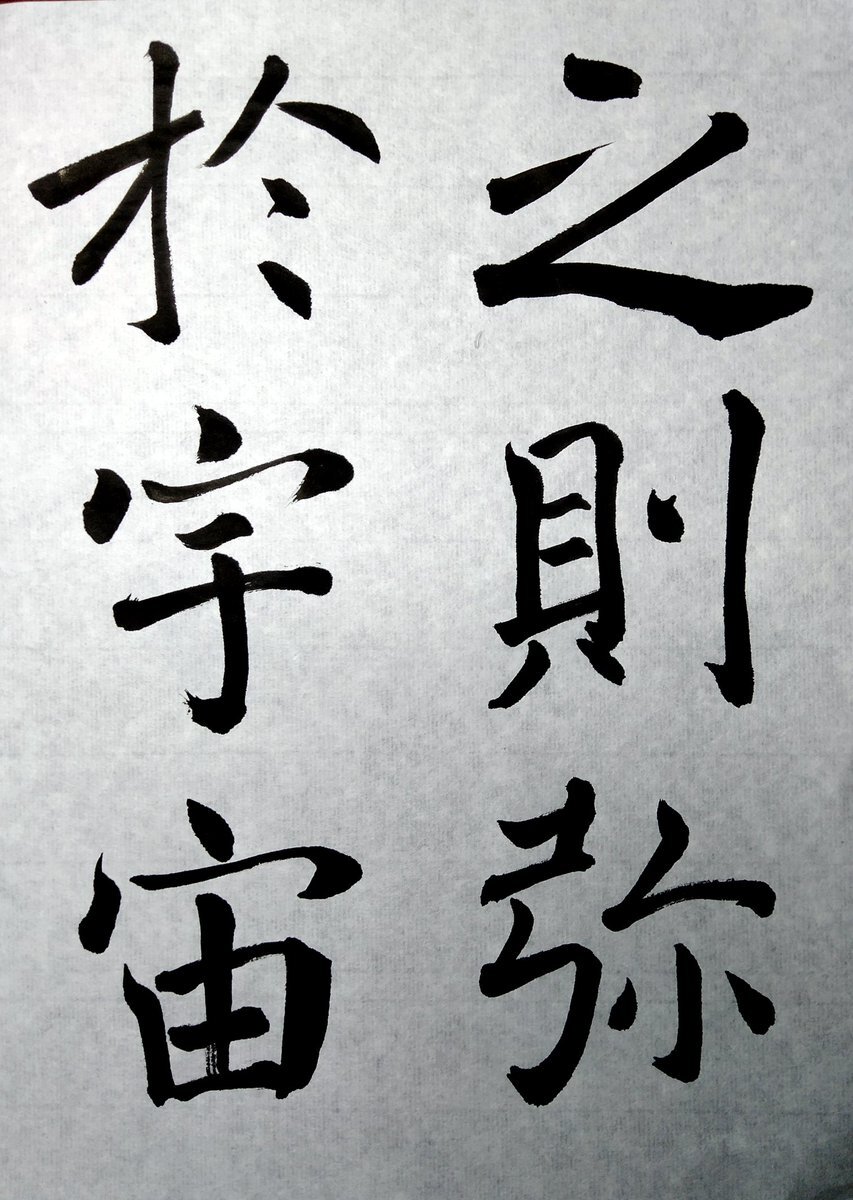 之則弥
於宇宙